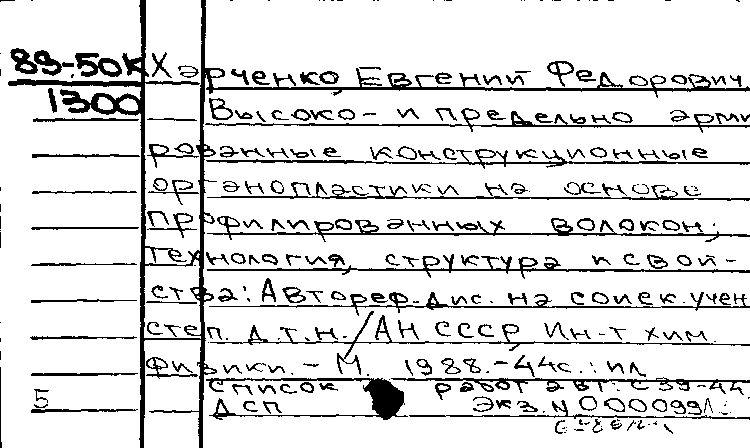 89-50К Харченко, Евгений Федорович
1300 Высоко- и предельно арми
рованные конструкционные
органопластики на основе
профилированных волокон;
технология, структура и свой-
ства: Автореф. дис. на соиск. учен
степ. д.т.н. / АН СССР, Ин-т хим.
физики. - М. 1988. - 44с.: ил
список работ авт. с 39-44.
5 ДСП Экз. N 000099